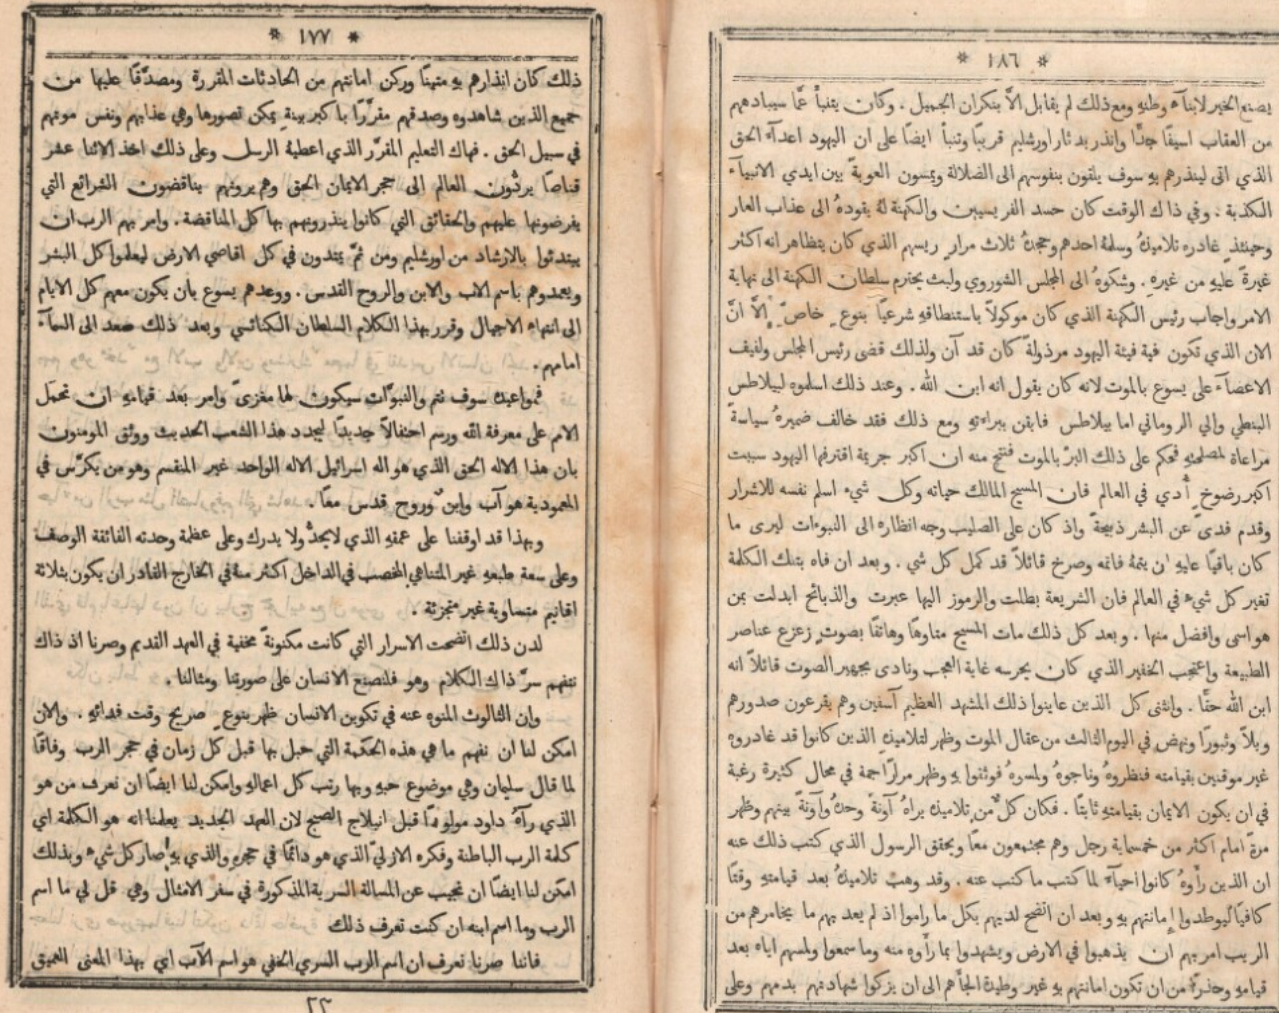 * ١٨٦ *
يصنع الخير لابنآء وطنهِ ومع ذلك لم يقابل الاَّ بنكران الجميل . وكان يتنبأُ عمَّا سيبادهم
من العقاب اسيفًا جدًّا وانذر بدثار اورشليم قريبًا وتنبأ ايضًا على ان اليهود اعدآء الحق
الذي اتى لينذرهم بهِ سوف يلقون بنفوسهم الى الضلالة ويمسون العوبةً بين ايدي الانبيآء
الكذبة . وفي ذاك الوقت كان حسد الفريسيين والكهنة لهُ يقودهُ الى عذاب العار
وحينئذٍ غادره تلاميذهُ وسلمهُ احدهم وجحدهُ ثلاث مرارٍ ريسهم الذي كان يتظاهر انه اكثر
غيرةً عليهِ من غيرهِ . وشكوهُ الى المجلس الشوروي ولبث يحترم سلطان الكهنة الى نهاية
الامر واجاب رئيس الكهنة الذي كان موكولاً باستنطاقهِ شرعيًا بنوعٍ خاصٍّ الاَّ انَّ
الان الذي تكون فيهِ فيئة اليهود مرذولةً كان قد آن ولذلك قضى رئيس المجلس ولفيف
الاعضآء على يسوع بالموت لانه كان يقول انه ابن الله . وعند ذلك اسلموه لبيلاطس
البنطي والي الروماني اما بيلاطس فايقن ببراءتهِ ومع ذلك فقد خالف ضميرهُ سياسةً
مراعاة لمصلحتهِ فحكم على ذلك البرّ بالموت فنتج منه ان اكبر جريمة اقترفها اليهود سببت
اكبر رضوخٍ أُدي في العالم فان المسيح المالك حياته وكل شيء اسلم نفسه للاشرار
وقدم فدىً عن البشر ذبيحةً واذ كان على الصليب وجه انظاره الى النبوءات ليرى ما
كان باقيًا عليهِ ان يتمهُ فاتمه وصرخ قائلاً قد كمل كل شي . وبعد ان فاه بتلك الكلمة
تغير كل شيء في العالم فان الشريعة بطلت والرموز اليها عبرت والذبائح ابدلت بمن
هو اسمى وافضل منها . وبعد كل ذلك مات المسيح متاوهًا وهاتفًا بصوتٍ زعزع عناصر
الطبيعة واعتجب الخفير الذي كان يحرسه غاية العجب ونادى بجهير الصوت قائلاً انه
ابن الله حقًا . وانثنى كل الذين عاينوا ذلك المشهد العظيم آسفين وهم يقرعون صدورهم
وبلاً وثبورًا ونهض في اليوم الثالث من عقال الموت وظهر لتلاميذهِ الذين كانوا قد غادروه
غير موقنين بقيامته فنظروهُ وناجوهُ ولمسوهُ فوثنوا بهِ وظهر مرارًا جمة في محال كثيرة رغبة
في ان يكون الايمان بقيامتهِ ثابتًا . فكان كلٌ من تلاميذه يراهُ آونةً وحدهُ وآونةً بينهم وظهر
مرةً امام اكثر من خمسماية رجل وهم مجتمعون معًا ويحقق الرسول الذي كتب ذلك عنه
ان الذين رأوهُ كانوا احيآء لما كتب ما كتب عنه . وقد وهب تلاميذهُ بعد قيامتهِ وقتًا
كافيًا ليوطدوا إِمانتهم بهِ وبعد ان اتضح لديهم بكل ما راموا اذ لم يعد بهم ما يخامرهم من
الريب امرهم ان يذهبوا في الارض ويشهدوا بما رأوه منه وما سمعوا ولمسهم اياه بعد
قيامهِ وحذرًا من ان تكون امانتهم بهِ غير وطيدة الجأهم الى ان يزكوا شهادتهم بدمهم وعلى
* ١٧٧ *
ذلك كان انذارهم بهِ متينًا وركن امانتهم من الحادثات المقررة ومصدَّقًا عليها من
جميع الذين شاهدوه وصدقهم مقرَّرًا باكبر بينةٍ يمكن تصورها وهي عذابهم ونفس موتهم
في سبيل الحق . فهاك التعليم المقرَّر الذي اعطيهُ الرسل وعلى ذلك اخذ الاثنا عشر
قناصًا يردُّون العالم الى حجر الايمان الحق وهم يرونهم يناقضون الشرائع التي
يفرضونها عليهم والحقائق التي كانوا ينذرونهم بها كل المناقضة . وامر بهم الرب ان
يبتدئوا بالارشاد من اورشليم ومن ثمَّ يمتدون في كل اقاصي الارض ليعلموا كل البشر
ويعمدوهم باسم الاب والابن والروح القدس . ووعدهم يسوع بان يكون معهم كل الايام
الى انتهاء الاجيال وقرر بهذا الكلام السلطان الكنائسي وبعد ذلك صعد الى السمآء
امامهم .
فمواعيدك سوف تتم والنبوَّات سيكون لها مغزىً وامر بعد قيامتهِ ان تحمل
الامم على معرفة الله ورسم احتفالاً جديدًا ليجدد هذا الشعب الحديث ووثق المومنون
بان هذا الاله الحق الذي هو اله اسرائيل الاله الواحد غير المنقسم وهو من يكرَّس في
المعمودية هو آب وابنٌ وروح قدس معًا .
وبهذا قد اوقفنا على عمقهِ الذي لا يحدُّ ولا يدرك وعلى عظمة وحدته الفائقة الوصف
وعلى سعة طبعهِ غير المتناهي المخصب في الداخل اكثر منهُ في الخارج القادر ان يكون بثلاثة
اقانيم متساوية غير متجزئة .
لدن ذلك اتضحت الاسرار التي كانت مكنونةً مخفية في العهد القديم وصرنا اذ ذاك
نتفهم سرَّ ذاك الكلام وهو فلنصنع الانسان على صورتنا ومثالنا .
وان الثالوث المنوه عنه في تكوين الانسان ظهر بنوعٍ صريح وقت فدائهِ . والان
امكن لنا ان نفهم ما هي هذه الحكمة التي حبل بها قبل كل زمان في حجر الرب وفاقًا
لما قال سليمان وهي موضوع حبهِ وبها رتب كل اعمالهِ وامكن لنا ايضًا ان نعرف من هو
الذي رآهُ داود مولودًا قبل انبلاج الصبح لان العهد الجديد يعلمنا انه هو الكلمة اي
كلمة الرب الباطنة وفكره الازليّ الذي هو دائمًا في حجرهِ والذي بهِ صار كل شيء وبذلك
امكن لنا ايضًا ان نجيب عن المسالة السرية المذكورة في سفر الامثال وهي قل لي ما اسم
الرب وما اسم ابنه ان كنت تعرف ذلك
فاننا صرنا نعرف ان اسم الرب السري الخفي هو اسم الآب اي بهذا المعنى العميق
٢٣